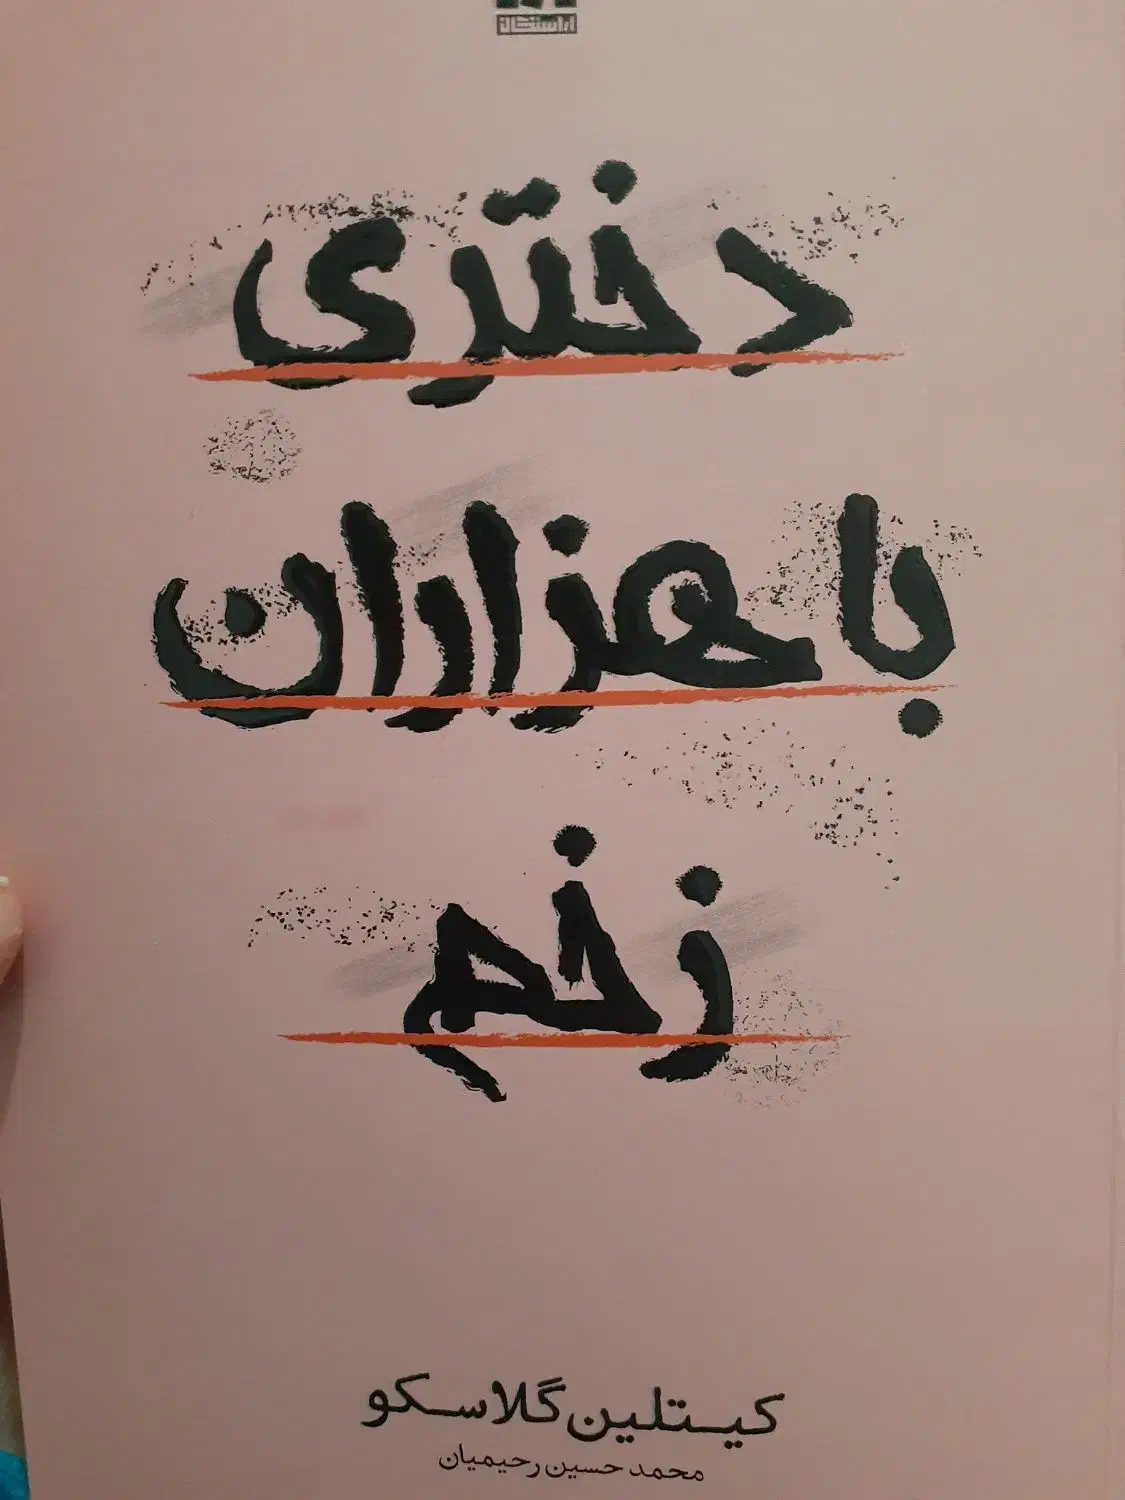 آراستگان
دختری
با هزاران
زخم
کیتلین گلاسکو
محمد حسین رحیمیان